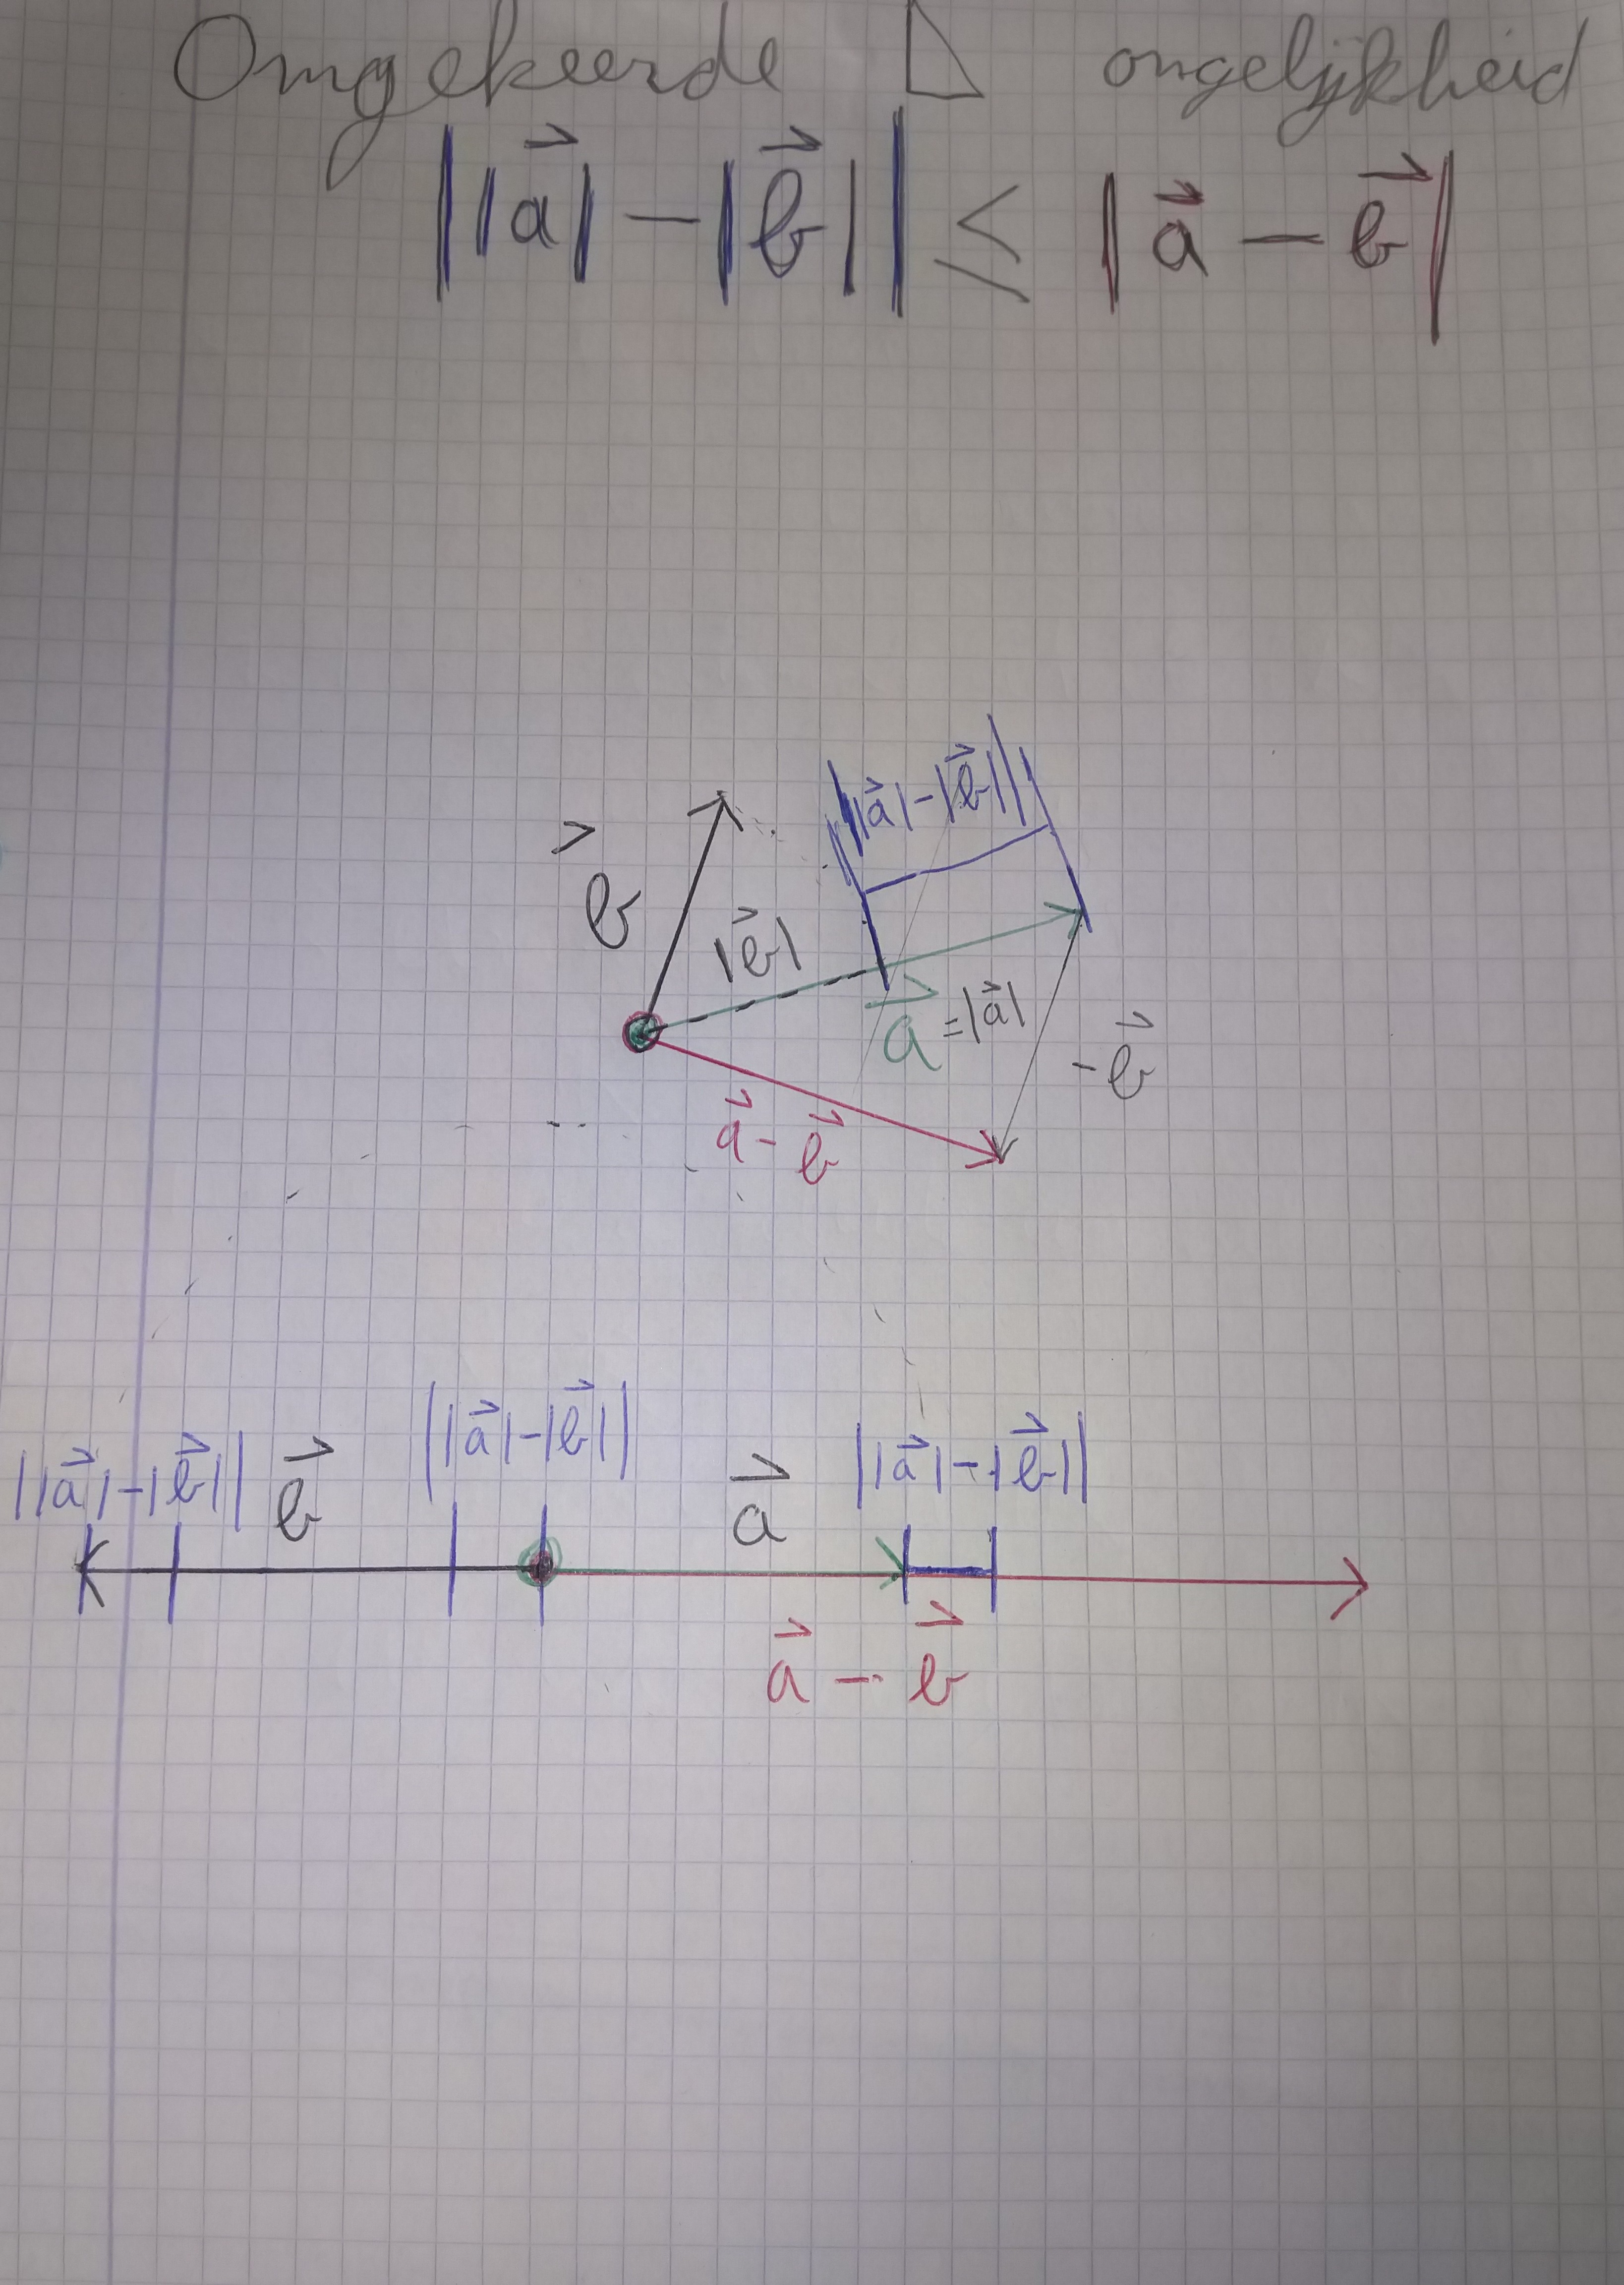 Omgekeerde △ ongelijkheid
||a⃗| − |b⃗|| ≤ |a⃗ − b⃗|
||a⃗|−|b⃗||
b⃗
|b⃗|
a⃗ = |a⃗|
−b⃗
a⃗ − b⃗
||a⃗|−|b⃗|| b⃗ ||a⃗|−|b⃗|| a⃗ ||a⃗|−|b⃗||
a⃗ − b⃗